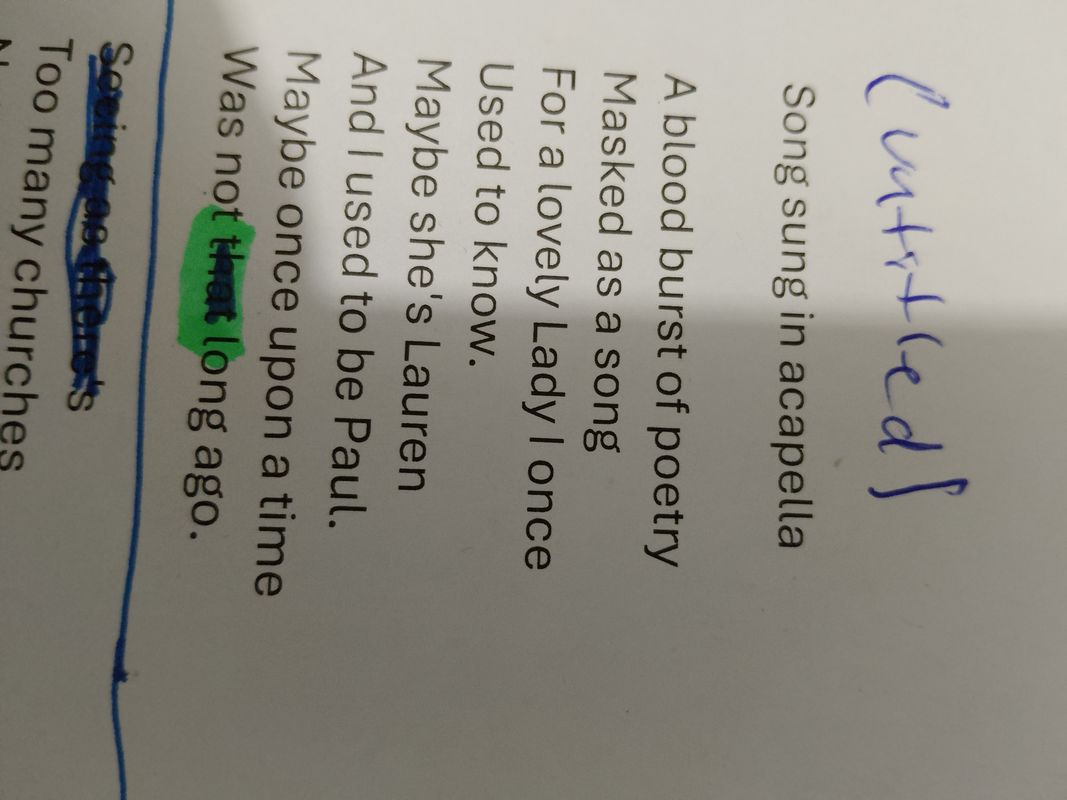 (untitled)
Song sung in acapella
A blood burst of poetry
Masked as a song
For a lovely Lady I once
Used to know.
Maybe she's Lauren
And I used to be Paul.
Maybe once upon a time
Was not that long ago.
Seeing as there's
Too many churches